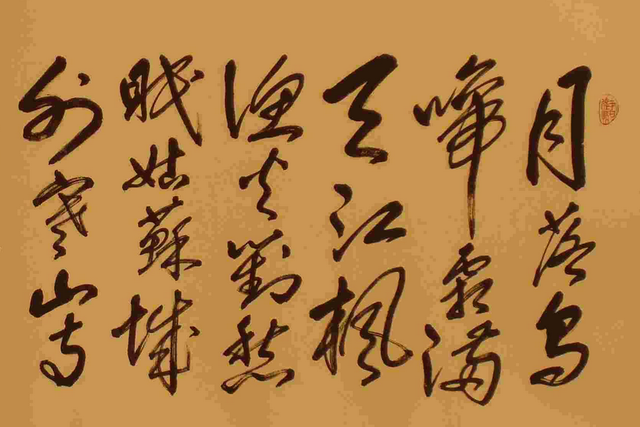 月落烏
啼霜满
天江枫
渔火對愁
眠姑蘇城
外寒山寺